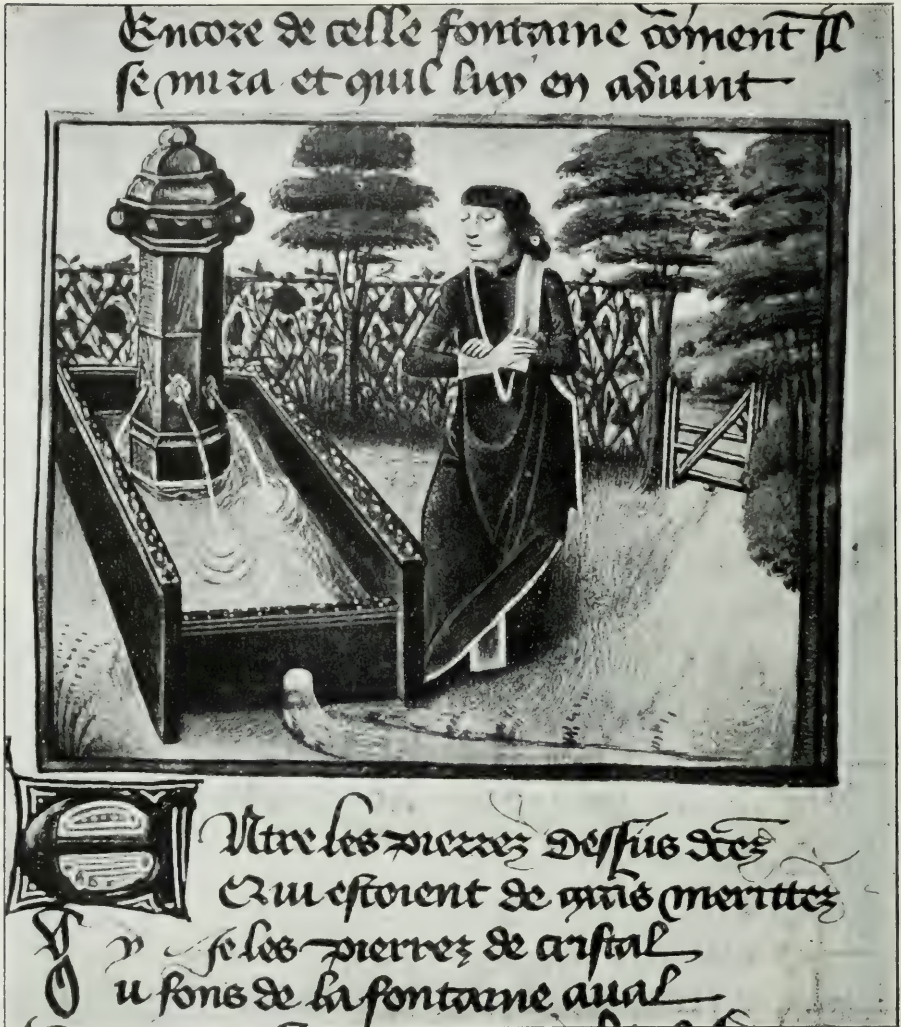 Encore de celle fontaine cōment Il
se mira et quil luy en aduint
Entre les pierrez dessus dc̄es
Qui estoient de grās merittez
les pierrez de cristal
Ou fons de la fontaine aual